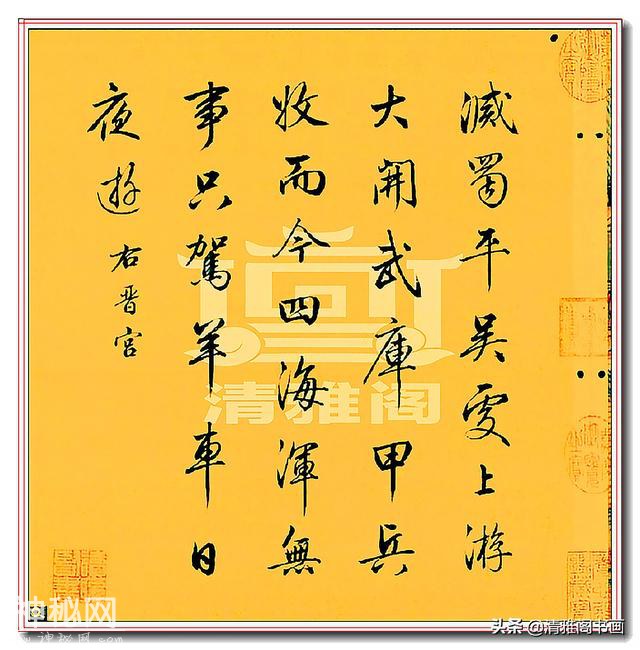 滅蜀平吳上游
大開武庫甲兵
收而今四海渾無
事只駕羊車日
夜遊 右晉宮
清雅阁
神秘网
头条 @清雅阁书画